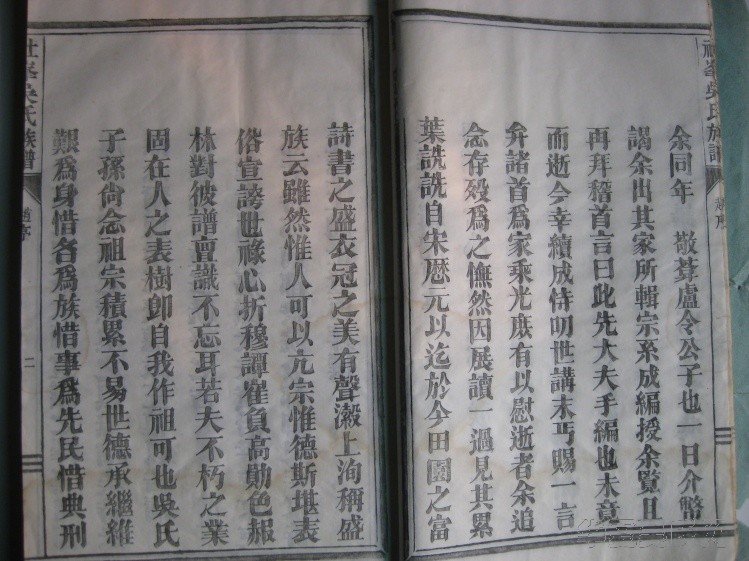 余同年 敬葊盧令公子也一日介幣
謁余出其家所輯宗系成編授余覽且
再拜稽首言曰此先大夫手編也未竟
而逝今幸續成恃叨世講末丐賜一言
弁諸首為家乘光庶有以慰逝者余追
念存歿為之憮然因展讀一過見其累
葉詵詵自宋曆元以迄於今田園之富
詩書之盛衣冠之美有聲瀫上洵稱盛
族云雖然惟人可以亢宗惟德斯堪表
俗宣誇世祿心折穆譚崔負高勛色赧
林對彼譜亶識不忘耳若夫不朽之業
固在人之表樹卽自我作祖可也吳氏
子孫尙念祖宗積累不易世德承繼維
艱為身惜名為族惜事為先民惜典刑
社峯吳氏族譜
趙序
二